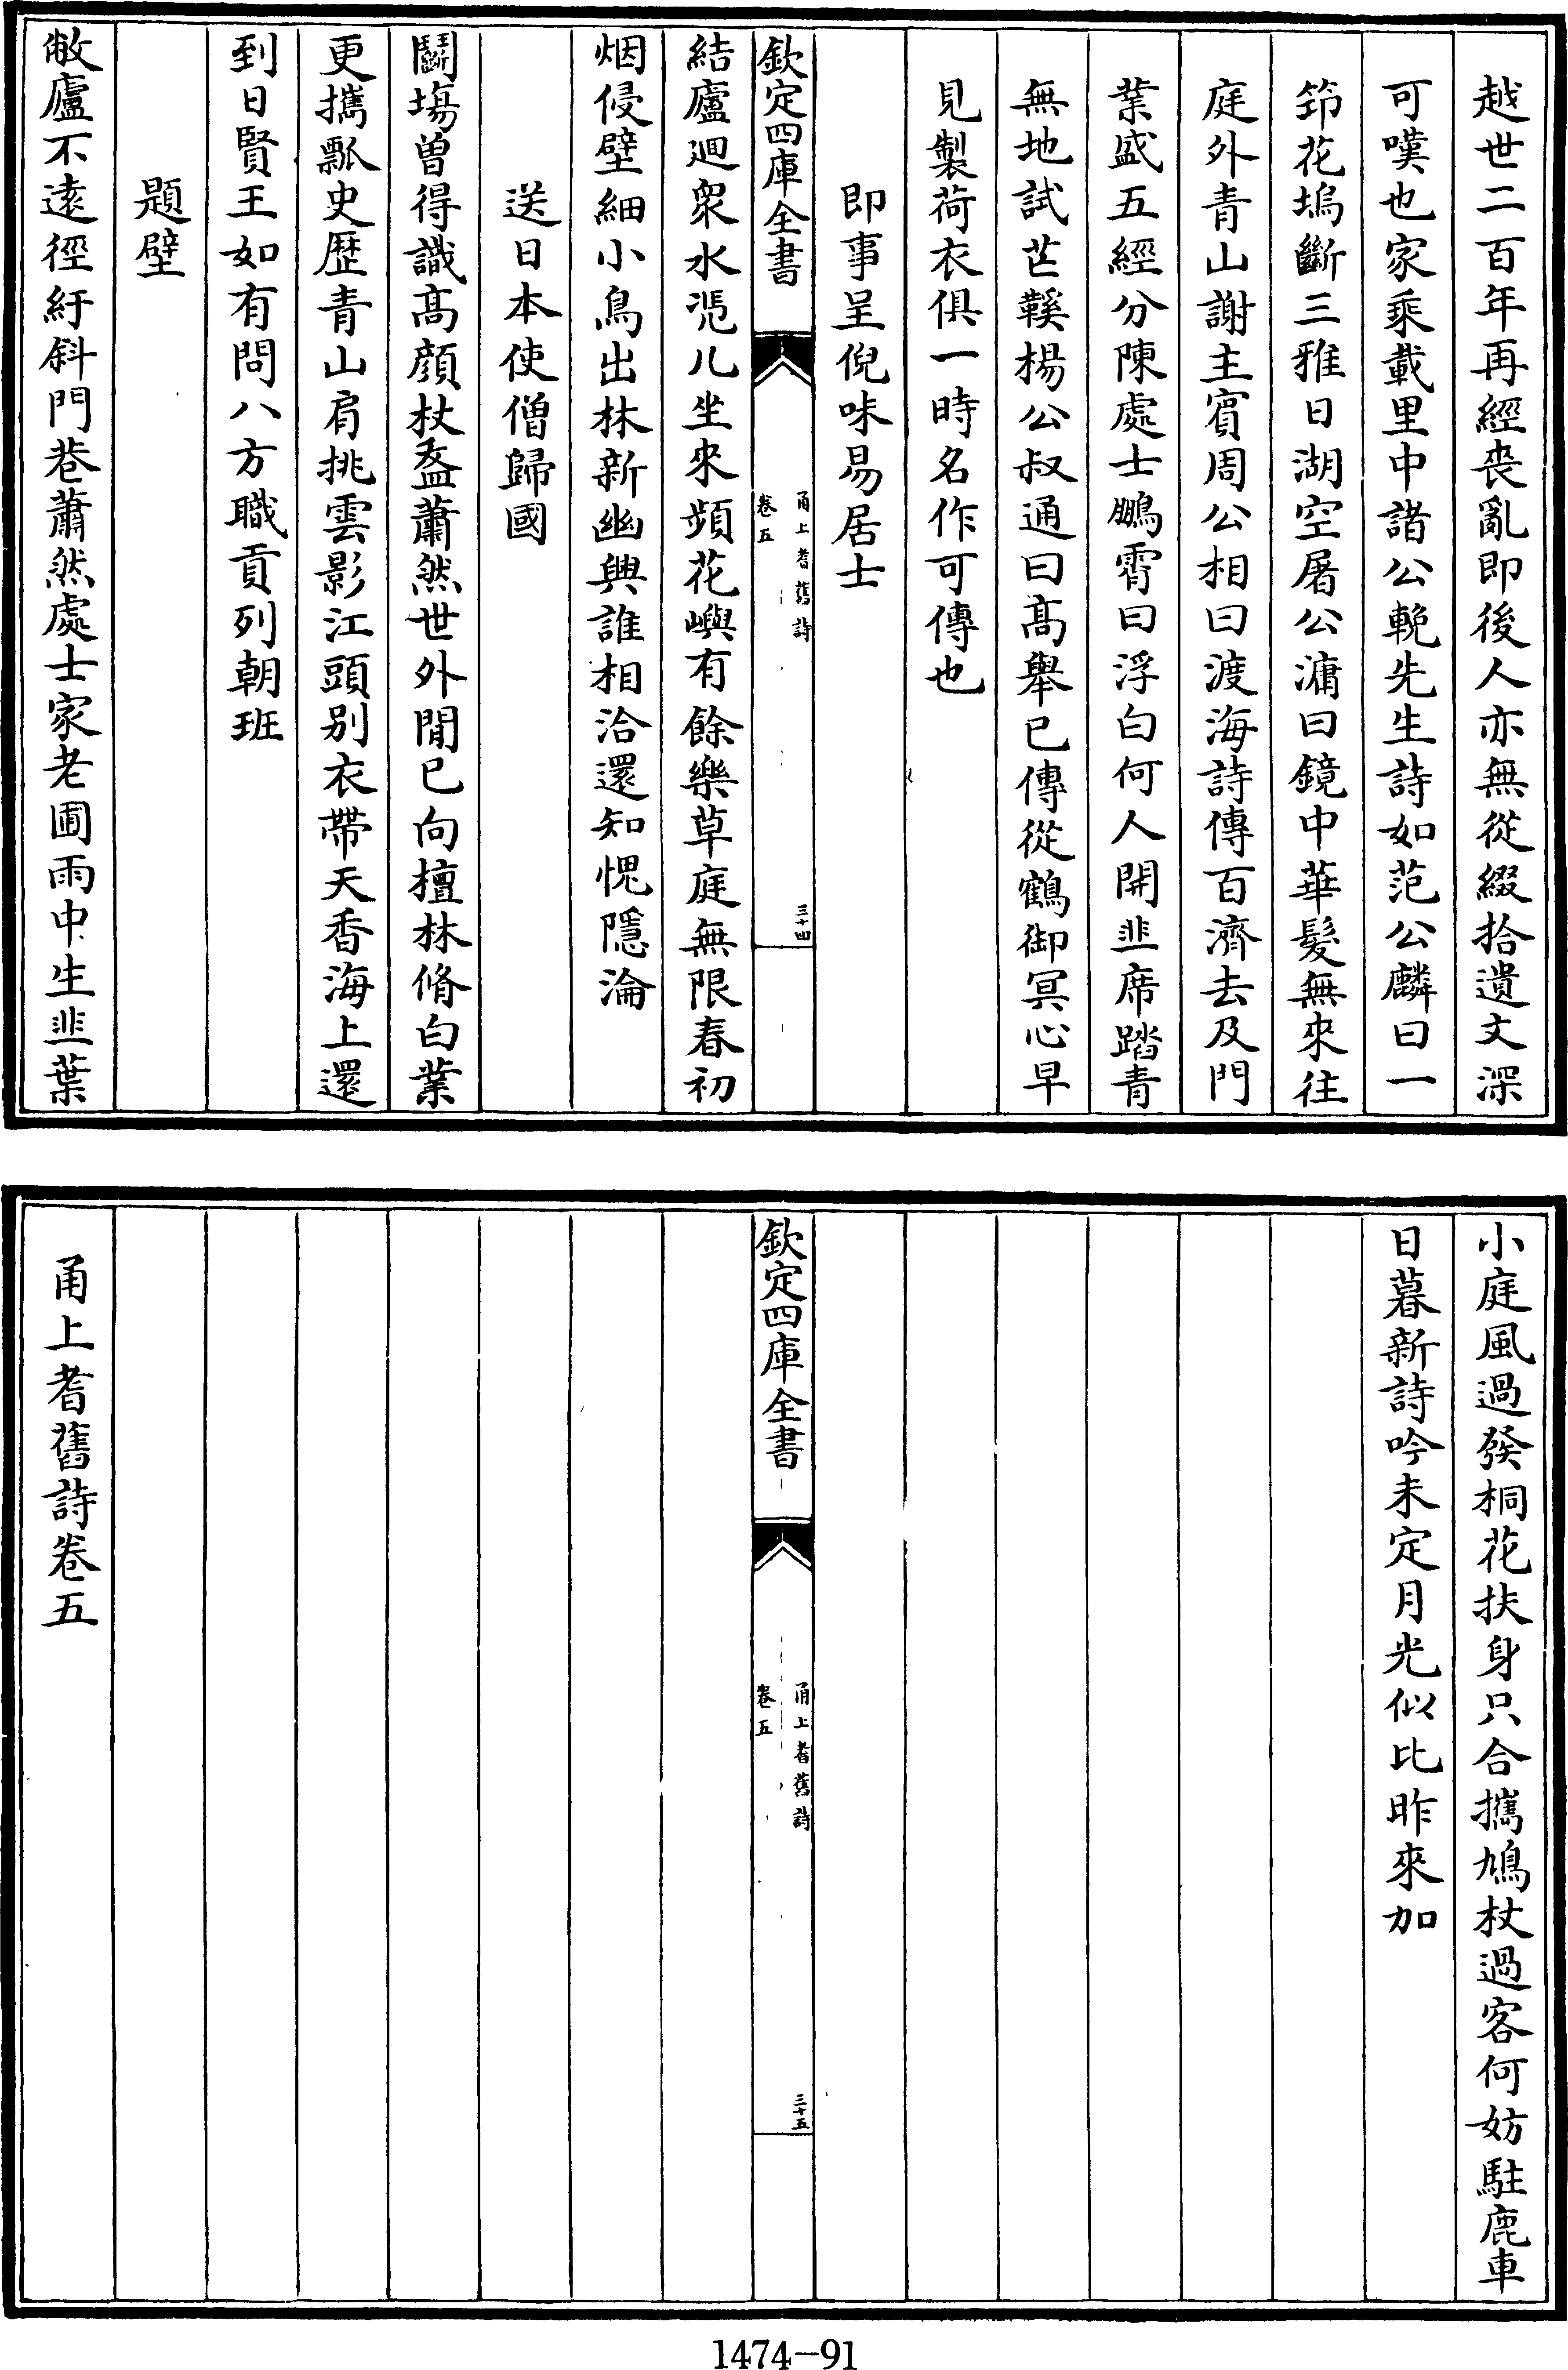 越世二百年再經喪亂即後人亦無從綴拾遺文深
可嘆也家乘載里中諸公輓先生詩如范公麟曰一
笻花塢斷三雅日湖空屠公滽曰鏡中華髮無來往
庭外青山謝主賓周公相曰渡海詩傳百濟去及門
業盛五經分陳處士鵬霄曰浮白何人開韭席踏青
無地試芒鞵楊公叔通曰髙舉已傳從鶴御冥心早
見製荷衣俱一時名作可傳也
即事呈倪味易居士
欽定四庫全書
甬上耆舊詩
卷五
三十四
結廬迴衆水凭几坐來頻花嶼有餘樂草庭無限春初
烟侵壁細小鳥出林新幽興誰相洽還知愧隱淪
送日本使僧歸國
鬭塲曾得識髙顔杖盋蕭然世外閒已向擅林脩白業
更攜瓢史歷青山肩挑雲影江頭别衣帶天香海上還
到日賢王如有問八方職貢列朝班
題壁
敝廬不遠徑紆斜門巷蕭然處士家老圃雨中生韭葉
小庭風過發桐花扶身只合攜鳩杖過客何妨駐鹿車
日暮新詩吟未定月光似比昨來加
欽定四庫全書
甬上耆舊詩
卷五
三十五
甬上耆舊詩卷五
1474-91